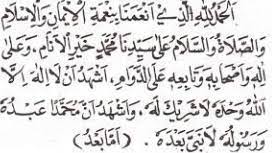 اَلْحَمْدُ لِلّٰهِ الَّذِيْ اَنْعَمَنَا بِنِعْمَةِ الْاِيْمَانِ وَالْاِسْلَامِ
وَالصَّلَاةُ وَالسَّلَامُ عَلٰى سَيِّدِنَا مُحَمَّدٍ خَيْرِ الْاَنَامِ، وَعَلٰى
اٰلِهِ وَاَصْحَابِهِ وَتَابِعِهِ عَلَى الدَّوَامِ، اَشْهَدُ اَنْ لَا اِلٰهَ اِلَّا
اللّٰهُ وَحْدَهُ لَا شَرِيْكَ لَهُ، وَاَشْهَدُ اَنَّ مُحَمَّدًا عَبْدُهُ
وَرَسُوْلُهُ لَا نَبِيَّ بَعْدَهُ. (اَمَّا بَعْدُ)